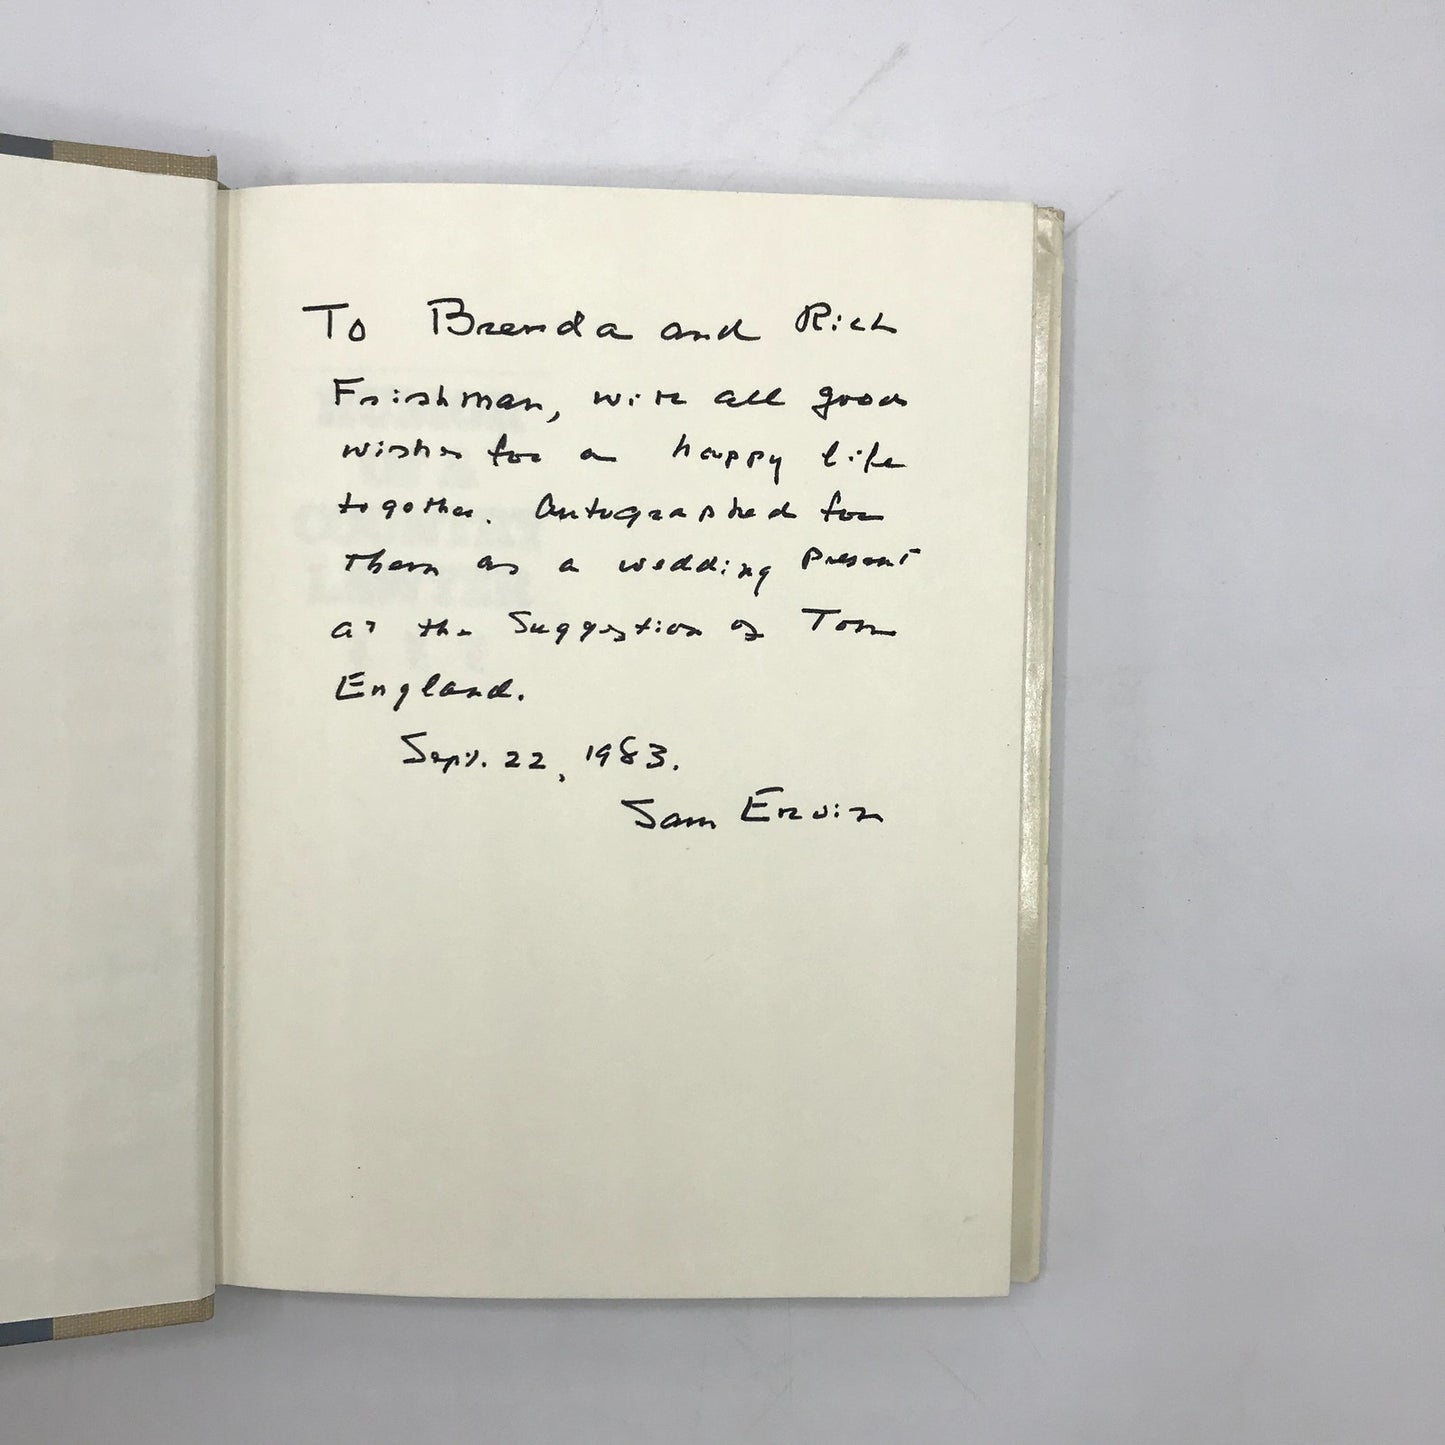 To Brenda and Rich
Frishman, with all good
wishes for a happy life
together. Autographed for
them as a wedding present
at the suggestion of Tom
England.
Sept. 22, 1983.
Sam Ervin